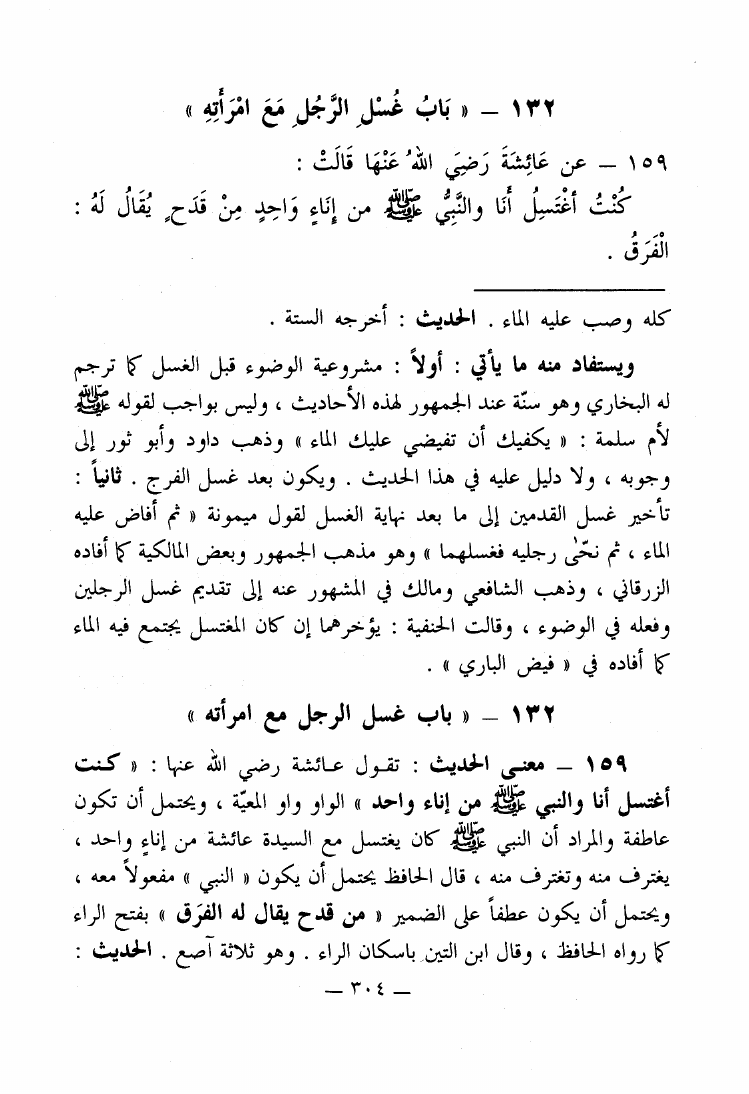 ١٣٢ – « بَابُ غُسْلِ الرَّجُلِ مَعَ امْرَأَتِهِ »
١٥٩ – عن عَائِشَةَ رَضِيَ اللهُ عَنْهَا قَالَتْ :
كُنْتُ أغْتَسِلُ أَنَا والنَّبِيُّ ﷺ من إِنَاءٍ وَاحِدٍ مِنْ قَدَحٍ يُقَالُ لَهُ :
الْفَرَقُ .
كله وصب عليه الماء . الحديث : أخرجه الستة .
ويستفاد منه ما يأتي : أولاً : مشروعية الوضوء قبل الغسل كما ترجم
له البخاري وهو سنّة عند الجمهور لهذه الأحاديث ، وليس بواجب لقوله ﷺ
لأم سلمة : « يكفيك أن تفيضي عليك الماء » وذهب داود وأبو ثور إلى
وجوبه ، ولا دليل عليه في هذا الحديث . ويكون بعد غسل الفرج . ثانياً :
تأخير غسل القدمين إلى ما بعد نهاية الغسل لقول ميمونة « ثم أفاض عليه
الماء ، ثم نحّى رجليه فغسلهما » وهو مذهب الجمهور وبعض المالكية كما أفاده
الزرقاني ، وذهب الشافعي ومالك في المشهور عنه إلى تقديم غسل الرجلين
وفعله في الوضوء ، وقالت الحنفية : يؤخرهما إن كان المغتسل يجتمع فيه الماء
كما أفاده في « فيض الباري » .
١٣٢ – « باب غسل الرجل مع امرأته »
١٥٩ – معنى الحديث : تقول عائشة رضي الله عنها : « كنت
أغتسل أنا والنبي ﷺ من إناء واحد » الواو واو المعيّة ، ويحتمل أن تكون
عاطفة والمراد أن النبي ﷺ كان يغتسل مع السيدة عائشة من إناءٍ واحد ،
يغترف منه وتغترف منه ، قال الحافظ يحتمل أن يكون « النبي » مفعولاً معه ،
ويحتمل أن يكون عطفاً على الضمير « من قدح يقال له الفرَق » بفتح الراء
كما رواه الحافظ ، وقال ابن التين باسكان الراء . وهو ثلاثة آصع . الحديث :
– ٣٠٤ –